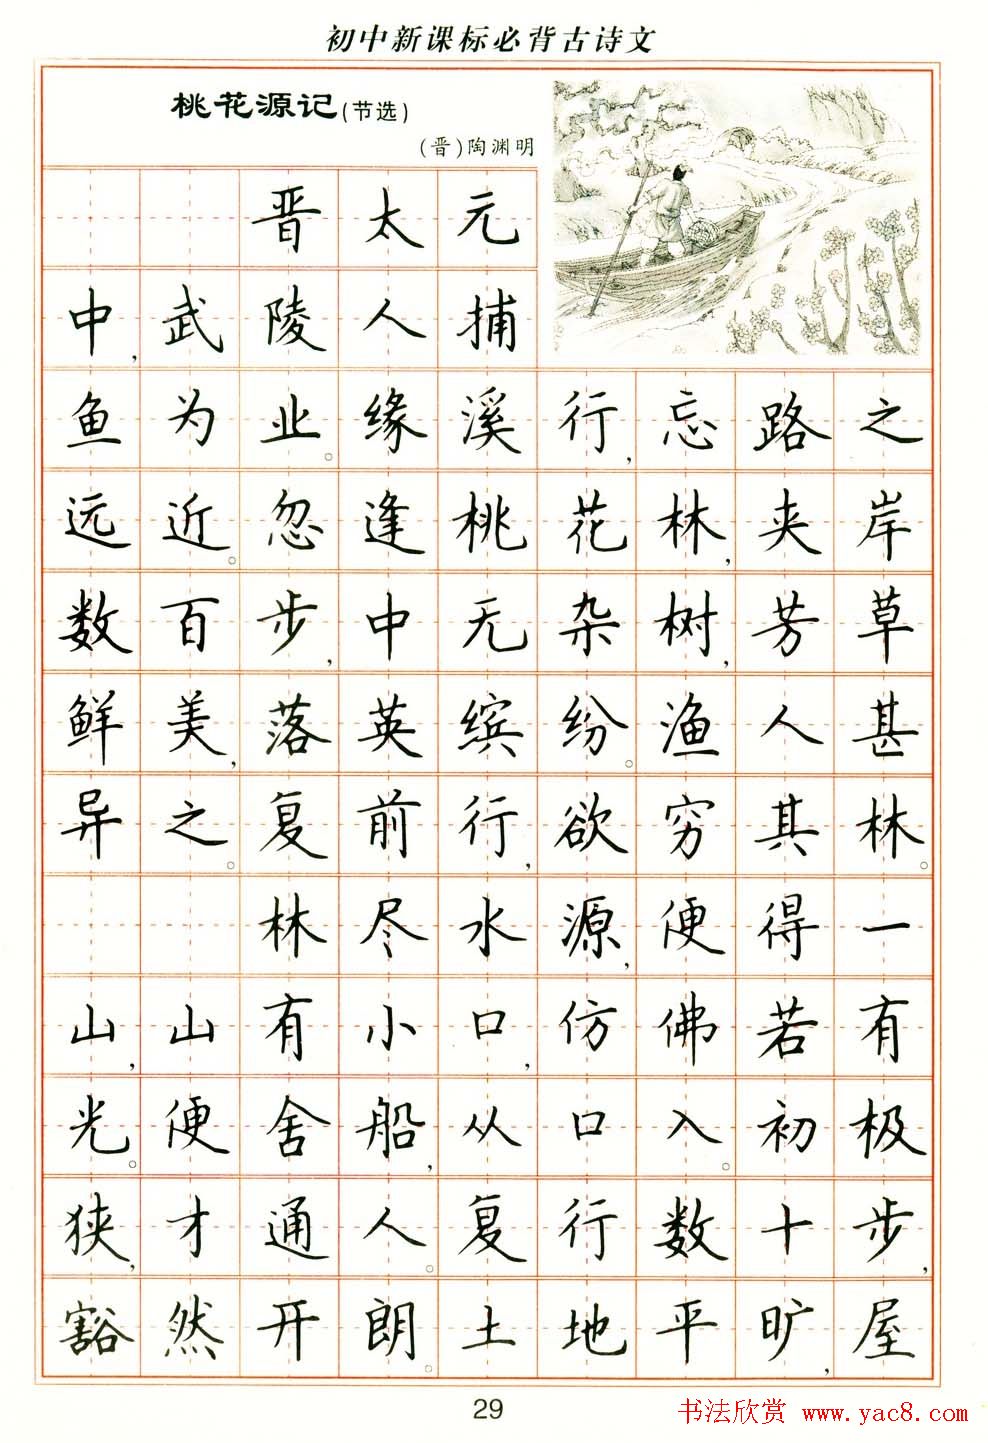 初中新课标必背古诗文
桃花源记(节选)
(晋)陶渊明
晋太元
中,武陵人捕
鱼为业。缘溪行,忘路之
远近。忽逢桃花林,夹岸
数百步,中无杂树,芳草
鲜美,落英缤纷。渔人甚
异之。复前行,欲穷其林。
林尽水源,便得一
山,山有小口,仿佛若有
光。便舍船,从口入。初极
狭,才通人。复行数十步,
豁然开朗。土地平旷,屋
29
书法欣赏 www.yac8.com